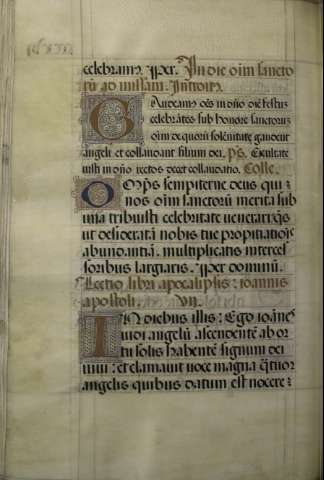 celebram⁹. ꝑxp̄. In die oı̄m sancto
rū ad missam. Introit⁹.
Gaudeam⁹ oēs in dn̄o diē festū
celebrātes sub honore sanctorū
oı̄m de quorū solēnitate gaudent
angeli et collaudant filium dei. ps. Exultate
iusti in dn̄o rectos decet collaudatio. Colle.
Omp̄s sempiterne deus qui
nos oı̄m sanctorū merita sub
una tribuisti celebritate venerari: q̄s
ut desideratā nobis tue propitiatiōis
abundantiā. multiplicatis interces
soribus largiaris. ꝑxp̄ dominū.
Lectio libri apocalipsis: ioannis
apostoli. VII.
In diebus illis: Ego ioānes
vidi angelū ascendentē ab or
tu solis habentē signum dei
vivi: et clamavit voce magna q̄tuor
angelis quibus datum est nocere